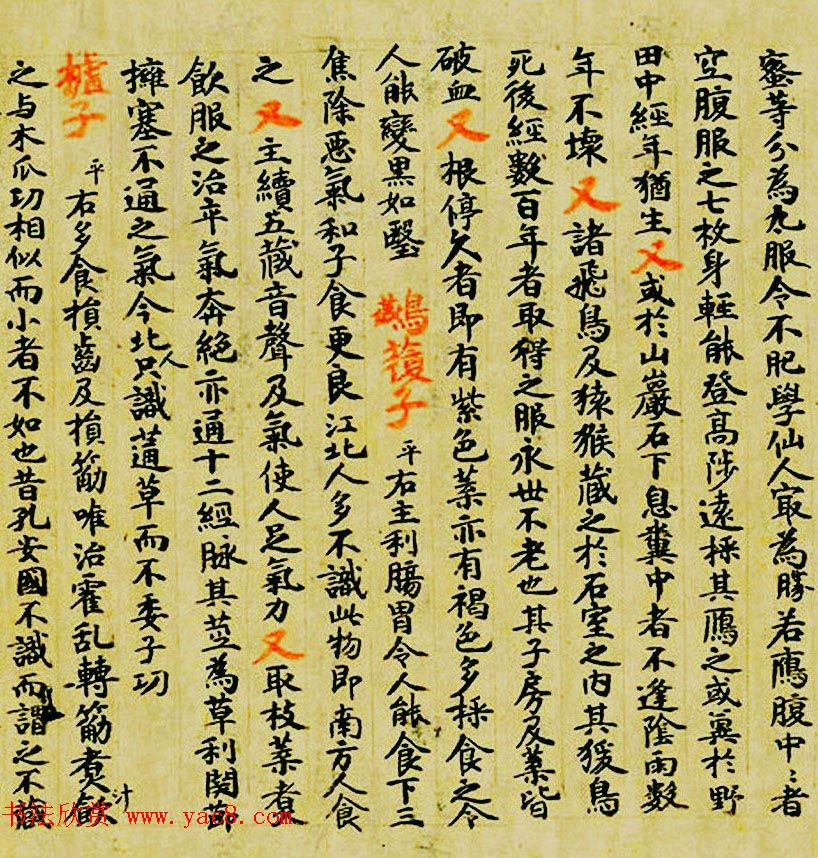 蜜等分為丸服令不肥學仙人冣為勝若鴈腹中〻者
空腹服之七枚身輕能登高陟遠採其鴈之或糞於野
田中經年猶生又或於山巖石下息糞中者不逢陰雨數
年不壞又諸飛鳥及猿猴藏之於石室之内其猨鳥
死後經數百年者取得之服永世不老也其子房及葉皆
破血又根停久者即有紫色葉亦有褐色多採食之令
人能變黑如瑿 燕覆子 平右主利腸胃令人能食下三
焦除惡氣和子食更良江北人多不識此物即南方人食
之又主續五藏音聲及氣使人足氣力又取枝葉煮
飲服之治卒氣奔絕亦通十二經脉其莖為草利関節
擁塞不通之氣今北人只識蓪草而不委子功
樝子 平 右多食損齒及損筋唯治霍乱轉筋煮汁飲
之与木瓜功相似而小者不如也昔孔安國不識而謂之不藏
书法欣赏 www.yac8.com